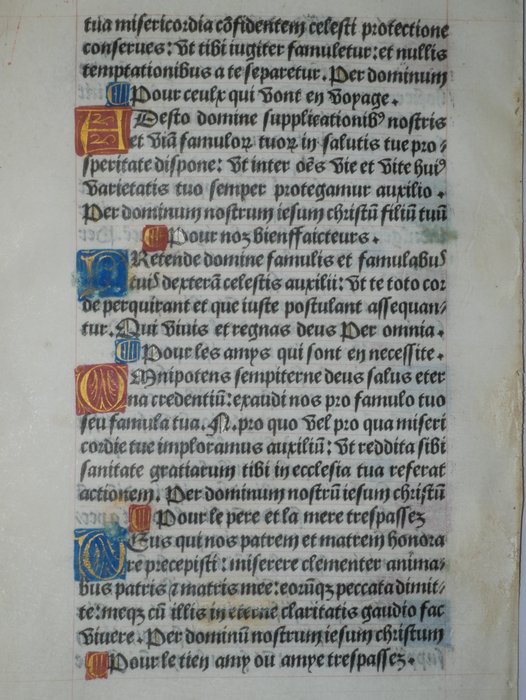 tua misericordia cõfidentem celesti protectione
conserues: Vt tibi iugiter famuletur: et nullis
temptationibus a te separetur. Per dominum
Pour ceulx qui vont en voyage.
ADesto domine supplicationibꝰ nostris
et viã famuloꝝ tuoꝝ in salutis tue pro/
speritate dispone: Vt inter oẽs vie et vite huiꝰ
varietatis tuo semper protegamur auxilio.
Per dominum nostrum iesum christũ filiũ tuũ
Pour noz bienffaicteurs.
PRetende domine famulis et famulabuꝰ
tuiꝰ dexterã celestis auxilii: Vt te toto cor
de perquirant et que iuste postulant assequan/
tur. Qui viuis et regnas deus Per omnia.
Pour les amys qui sont en necessite.
OMnipotens sempiterne deus salus eter
na credentiũ: exaudi nos pro famulo tuo
seu famula tua. N. pro quo vel pro qua miseri
cordie tue imploramus auxiliũ: Vt reddita sibi
sanitate gratiarum tibi in ecclesia tua referat
actionem. Per dominum nostrũ iesum christũ
Pour le pere et la mere trespassez
DEus qui nos patrem et matrem honora
re precepisti: miserere clementer anima/
bus patris ⁊ matris mee: eorũqꝫ peccata dimit/
te: meqꝫ cũ illis in eterne claritatis gaudio fac
viuere. Per dominũ nostrum iesum christum
Pour le tien amy ou amye trespassez.